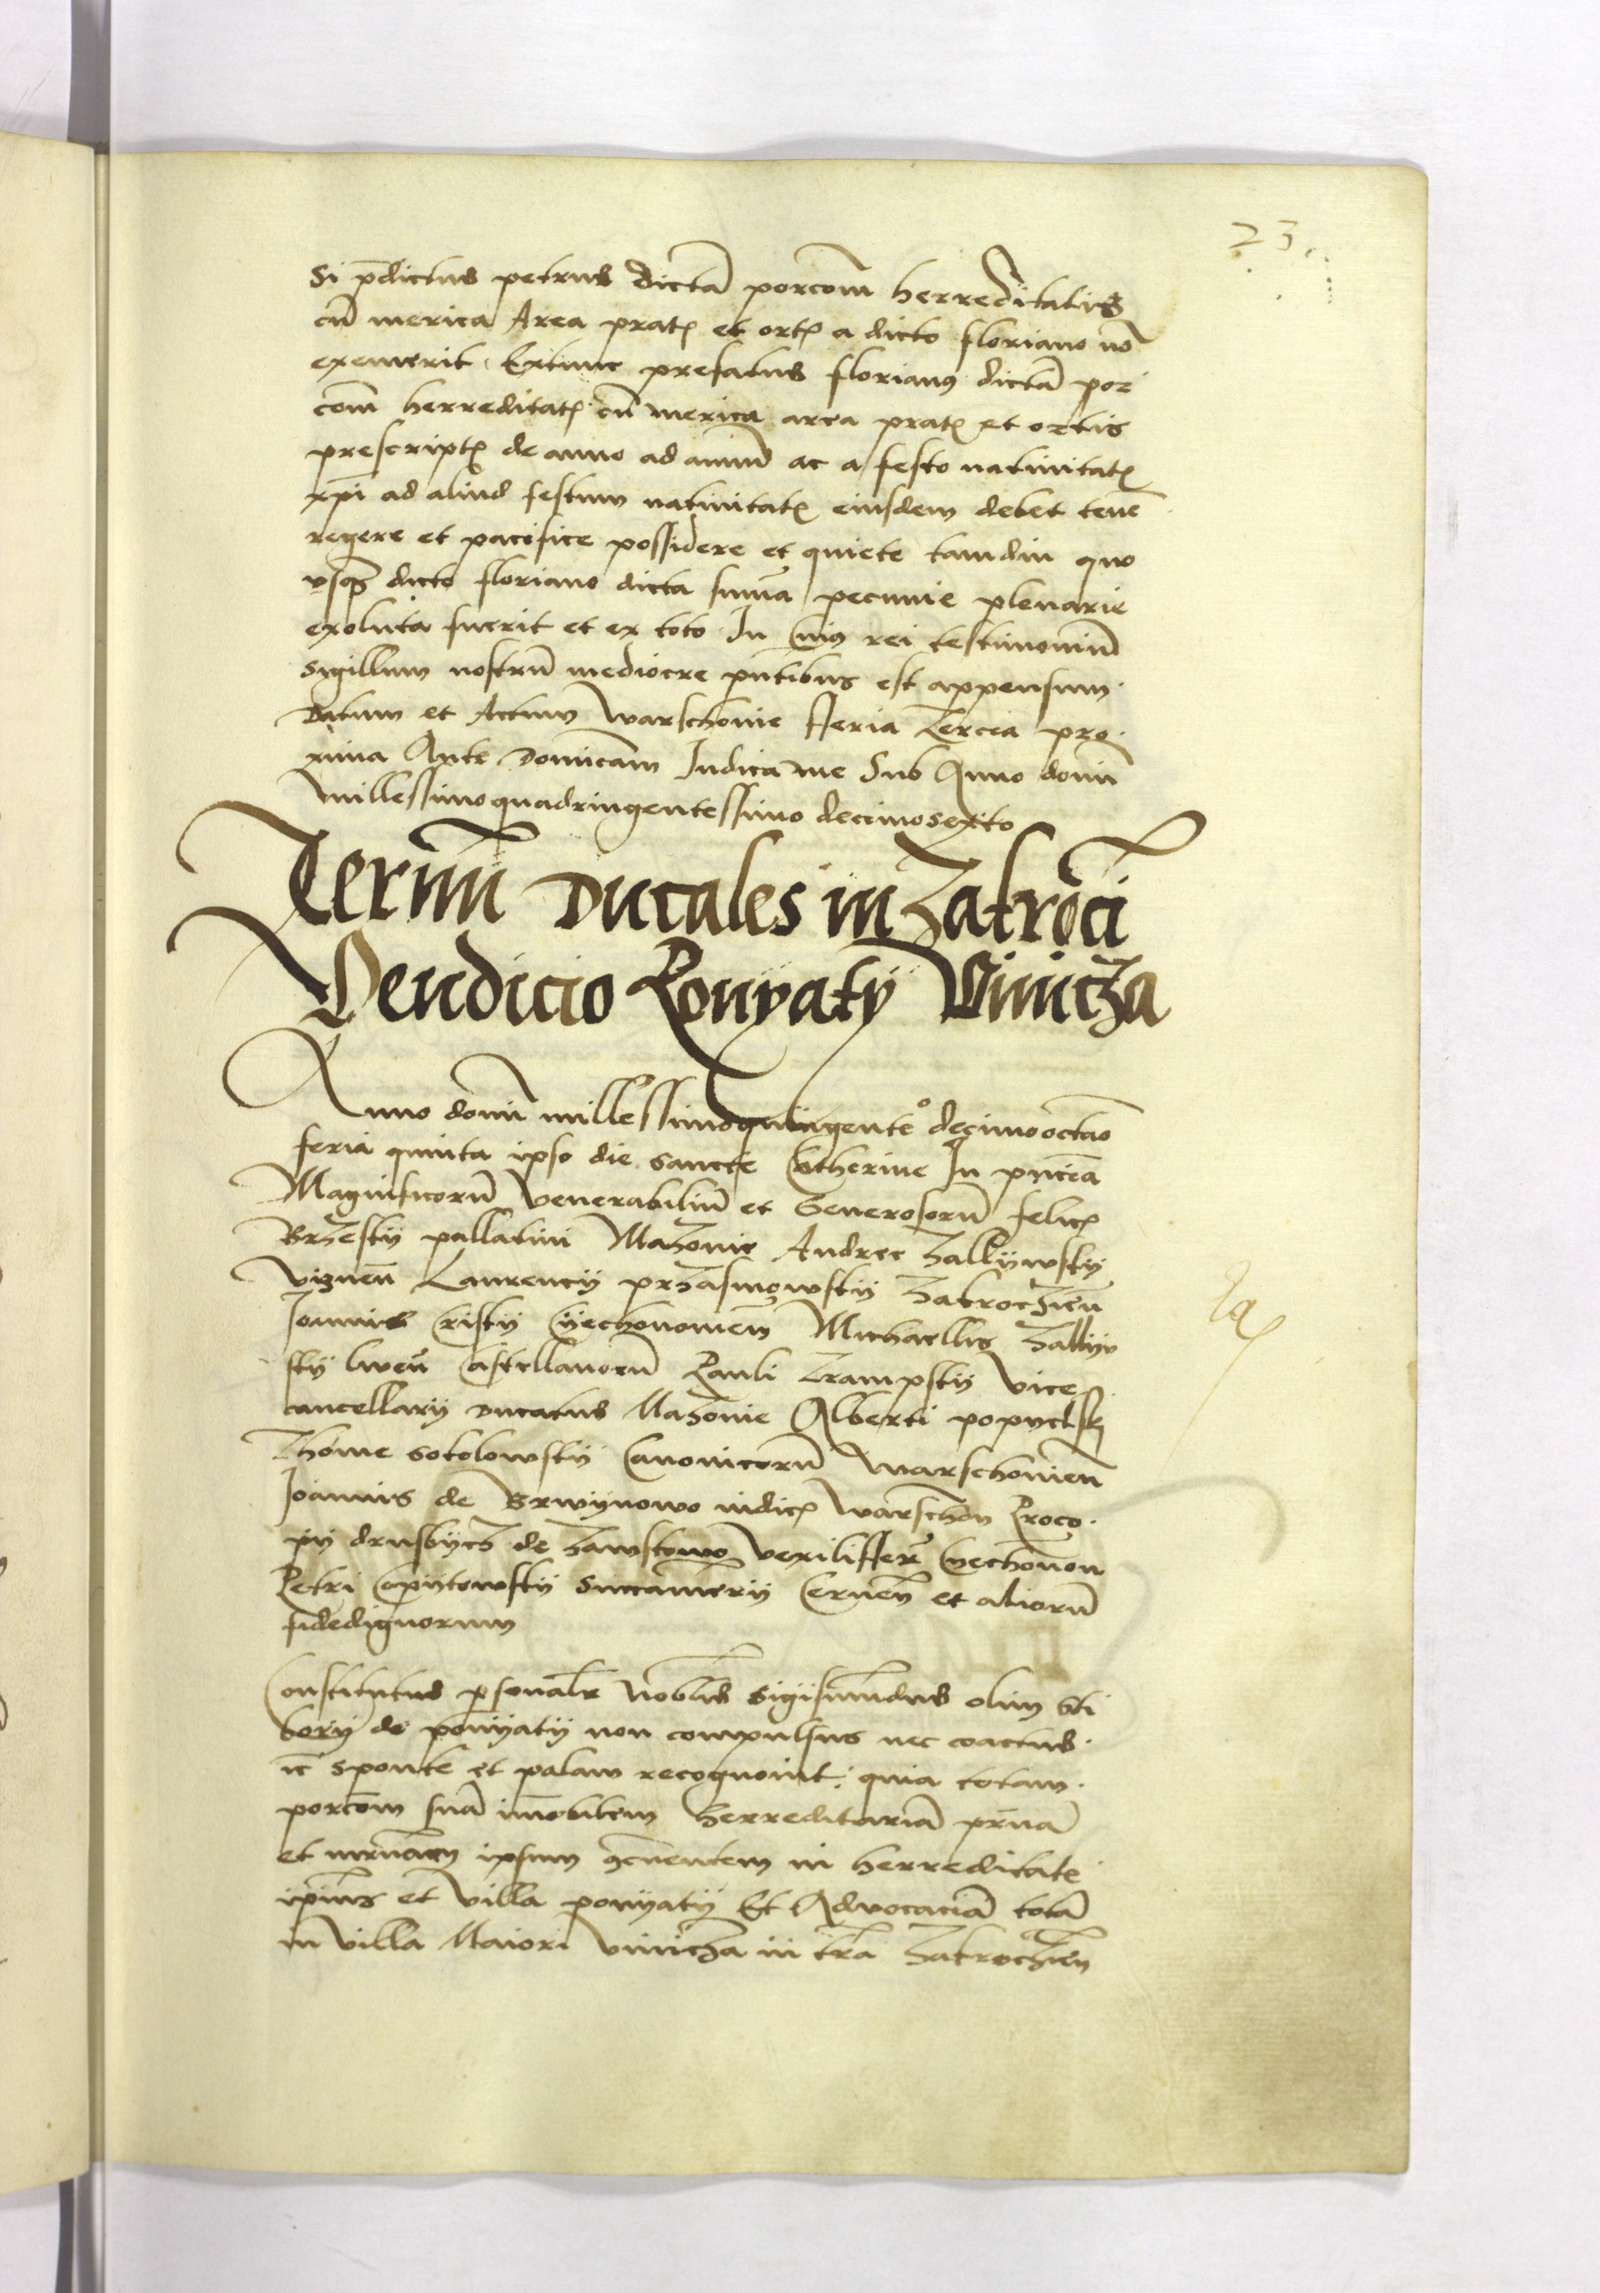 23
Si p̄dictus petrus dictā porcōm herreditatis
cū merica Area pratꝭ et ortꝭ a dicto floriano nō
exemerit Extunc prefatus florianꝰ dictā por
com̄ herreditatꝭ cū merica area pratꝭ et ortis
prescriptꝭ de anno ad annū ac a festo natiuitatꝭ
xp̄i ad aliud festum natiuitatꝭ eiusdem debet tenē
regere et pacifice possidere et quiete tamdiu quo
vsqꝫ dicto floriano dicta sum̄a pecunie plenarie
exoluta fuerit et ex toto In Cuiꝰ rei testimoniū
Sigillum nostrū mediocre pn̄tibus est appensum
Datum et Actum Warschouie fferia Tercia pro
xima Ante Domicam̄ Iudica me Sub Anno domī
millessimoquadringentessimo decimosexto
Termī Ducales in Zakroci
Vendicio Ponyaty Vinicza
Anno domī millessimoquingenteº decimooctāo
feria quinta ipso die sancte Catherine In pn̄cia
Magnificorū Venerabiliū et Generosorū felicꝭ
Brzesky pallatini Mazouie Andree Zallywsky
Viznen̄ Laurency przasmowsky Zakroczien̄
Joannis Crisky Cyechonouien̄ Michaellis Zallyv
sky liuen̄ Castellanorū Pauli Trampsky Vice
cancellary Ducatus Mazouie Alberti popyelsky
Thome Sokolowsky Canonicorū Warschouien̄
Joannis de Brwynowo iudicꝭ Warschoū Proco
py drusbycz de Zawskowo Vexilifferi Cyechonoū
Petri Copytowsky Succamery Cernen̄ et aliorū
fidedignorum
Constitutus p̱sonalr̄ Nobl̄is Sigismundus olim Sti
bory de ponyaty non compulsus nec coactus
sꝫ sponte et palam recognouit quia totam
porcōm suā im̄obilem herreditariā pr̄nā
et mr̄nam ipsum ꝯcn̄entem in herreditate
ip̄ius et Villa ponyaty Et Aduocaciā totā
in Villa Maiori Vinicza in tr̄a Zakroczien̄